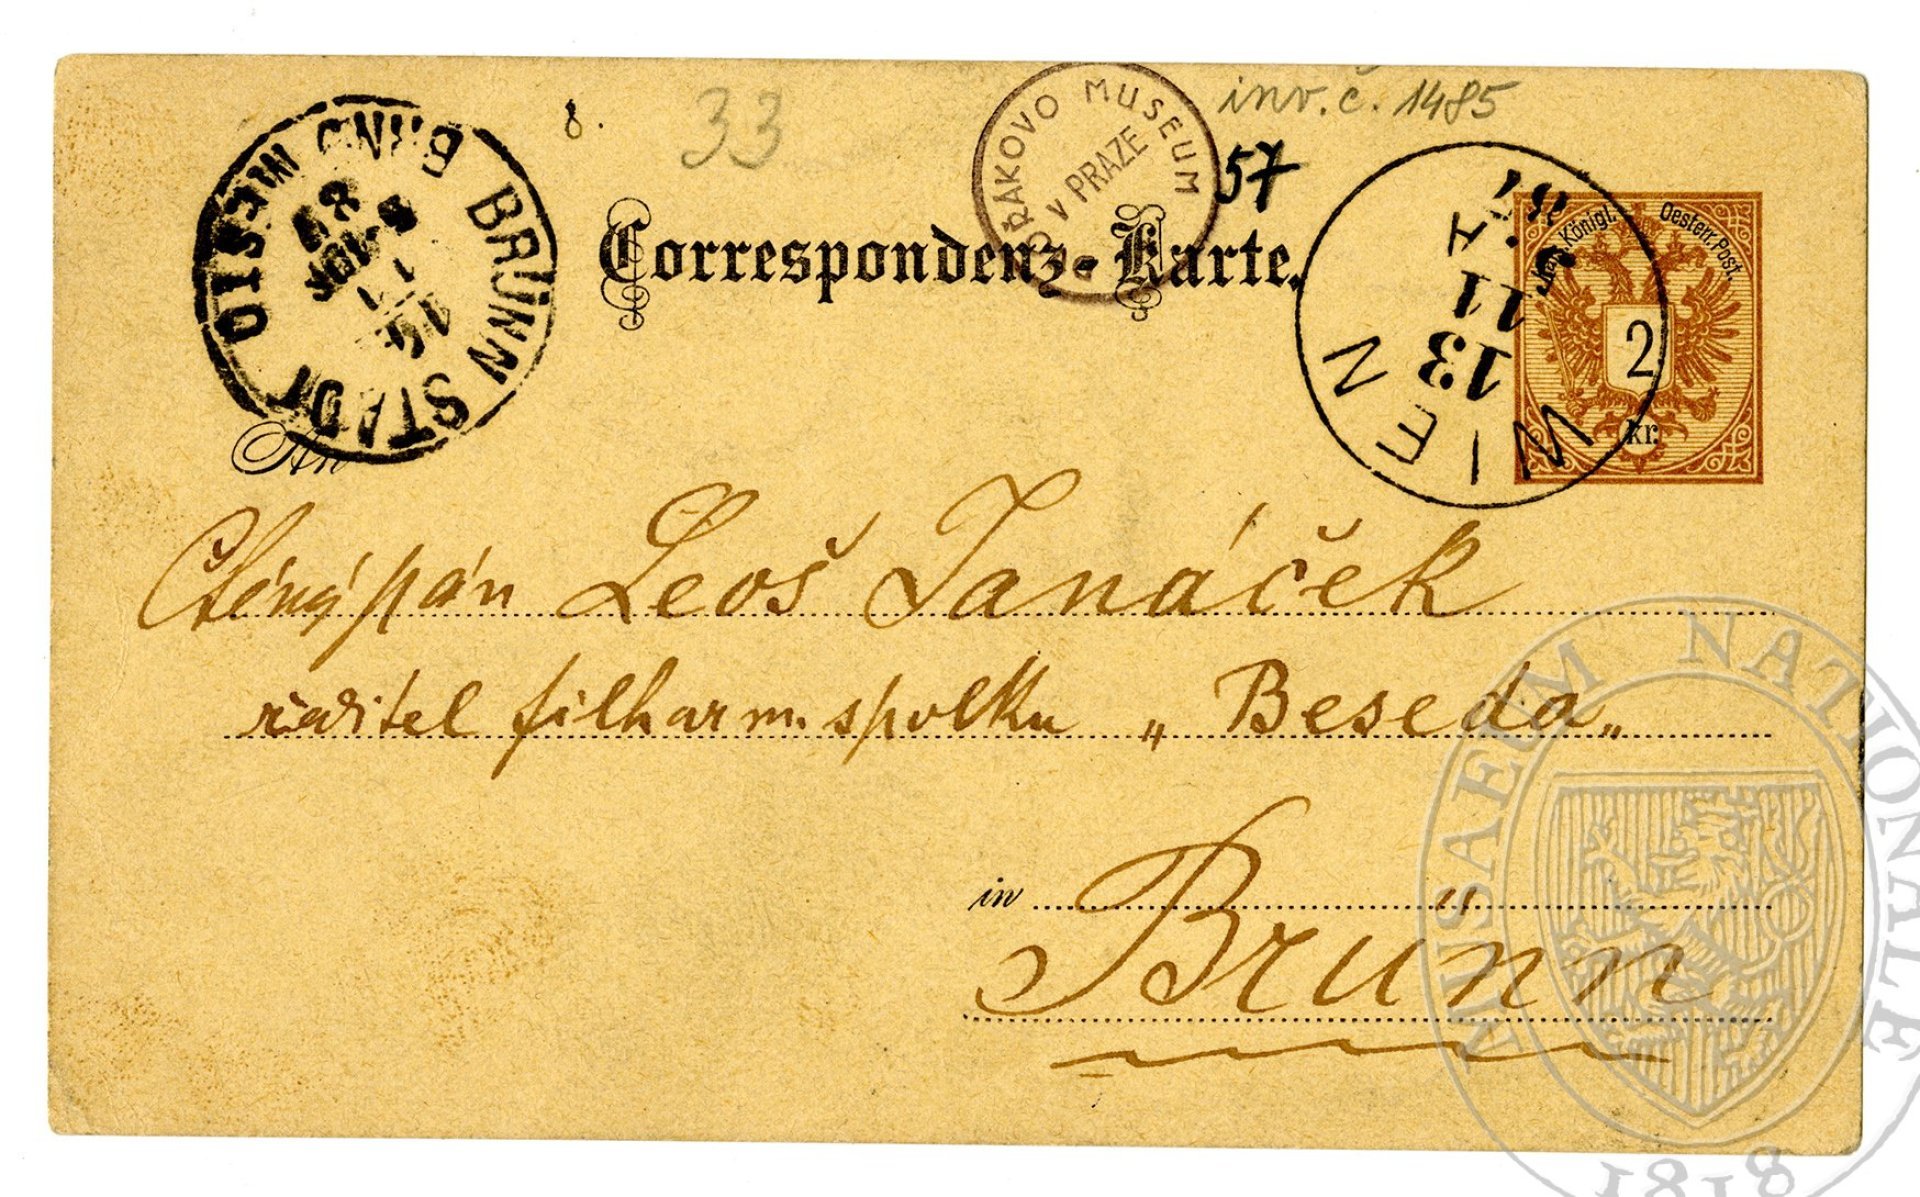 8.
33
inv. č. 1485
57
DVOŘÁKOVO MUSEUM
V PRAZE
BRÜNN STADT
BRNO MĚSTO
WIEN
13
11
Correspondenz-Karte.
Kais. Königl. Oesterr. Post.
2
kr.
An
Ctěný pán Leoš Janáček
řaditel filharm. spolku „Beseda„
in Brünn
MUSAEUM NATIONALE
1818